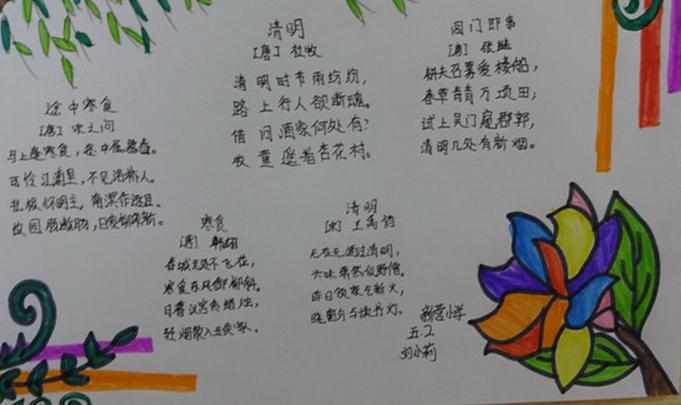 途中寒食
[唐] 宋之问
马上逢寒食，途中属暮春。
可怜江浦望，不见洛桥人。
北极怀明主，南溟作逐臣。
故园肠断处，日夜柳条新。
清明
[唐] 杜牧
清明时节雨纷纷，
路上行人欲断魂。
借问酒家何处有？
牧童遥指杏花村。
阊门即事
[唐] 张继
耕夫召募爱楼船，
春草青青万顷田；
试上吴门窥郡郭，
清明几处有新烟。
寒食
[唐] 韩翃
春城无处不飞花，
寒食东风御柳斜。
日暮汉宫传蜡烛，
轻烟散入五侯家。
清明
[宋] 王禹偁
无花无酒过清明，
兴味萧然似野僧。
昨日邻家乞新火，
晓窗分与读书灯。
营小学
五.2
刘小莉